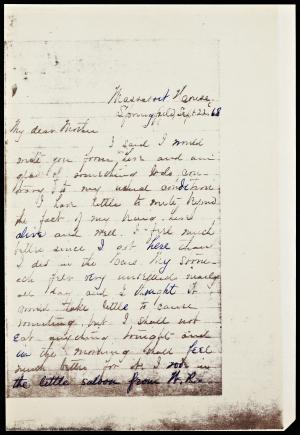 Massasoit House,
Springfield, Sept 22, 68
My dear Mother
I said I would
write you from here and am
glad of something to do, con-
trary to my usual condition
I have little to write beyond
the fact of my being here
alive and well. I feel much
better since I got here than
I did in the cars. My stom-
ach felt very unsettled nearly
all day and I thought it
would take little to cause
something, but I should not
eat anything tonight and
in the morning shall feel
much better for it. I rode in
the little saloon from N.R.